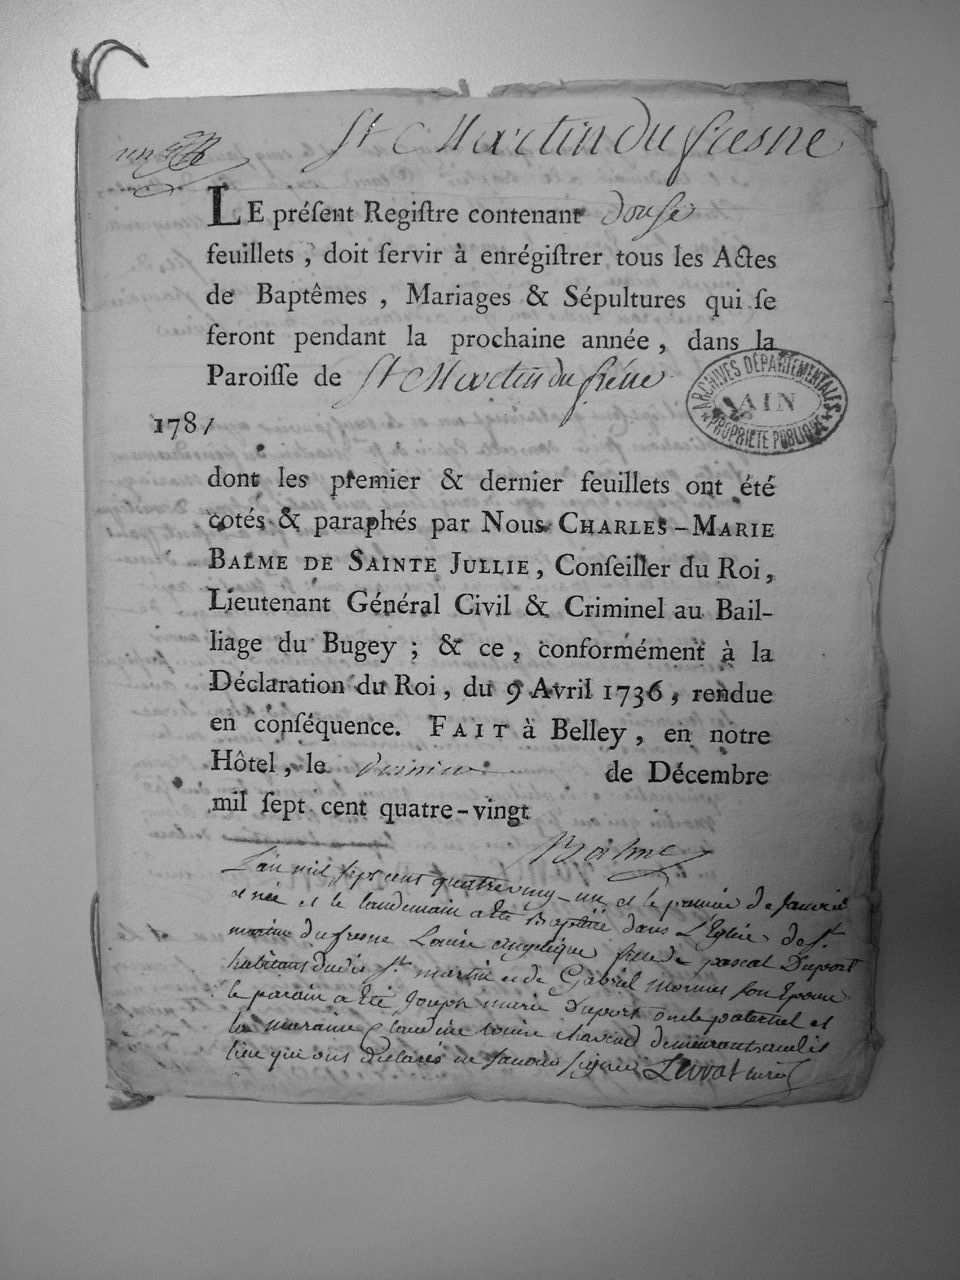 St Martin du fresne
un
LE préſent Regiſtre contenant douſe
feuillets, doit ſervir à enrégiſtrer tous les Actes
de Baptêmes, Mariages & Sépultures qui ſe
feront pendant la prochaine année, dans la
Paroiſſe de St Martin du frêne
ARCHIVES DÉPARTEMENTALES
AIN
PROPRIÉTÉ PUBLIQUE
1781
dont les premier & dernier feuillets ont été
cotés & paraphés par Nous CHARLES-MARIE
BALME DE SAINTE JULLIE, Conſeiller du Roi,
Lieutenant Général Civil & Criminel au Bail-
liage du Bugey; & ce, conformément à la
Déclaration du Roi, du 9 Avril 1736, rendue
en conſéquence. FAIT à Belley, en notre
Hôtel, le dernier de Décembre
mil ſept cent quatre-vingt
Balme
L'an mil ſept cent quatre ving-un et le premier de Janvier
et née et le landemain a été Baptiſée dans L'Egliſe de St
martin du freſne Louiſe angelique fille de pascal Duport
habitans dudit St martin et de Gabriel mornieu ſon Epouſe
le parain a été Joseph marie Duport oncle paternel et
la maraine Claudine Louiſe demeurants audit
lieu qui ont declarés ne ſavoir ſigner Levrat curé